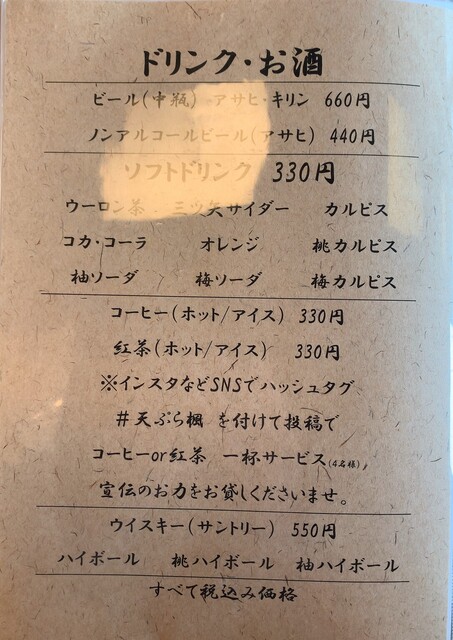 ドリンク・お酒
ビール(中瓶) アサヒ・キリン 660円
ノンアルコールビール(アサヒ) 440円
ソフトドリンク 330円
ウーロン茶 三ツ矢サイダー カルピス
コカ・コーラ オレンジ 桃カルピス
柚ソーダ 梅ソーダ 梅カルピス
コーヒー(ホット/アイス) 330円
紅茶(ホット/アイス) 330円
※インスタなどSNSでハッシュタグ
#天ぷら楓 を付けて投稿で
コーヒーor紅茶 一杯サービス(4名様)
宣伝のお力をお貸しくださいませ。
ウイスキー(サントリー) 550円
ハイボール 桃ハイボール 柚ハイボール
すべて税込み価格